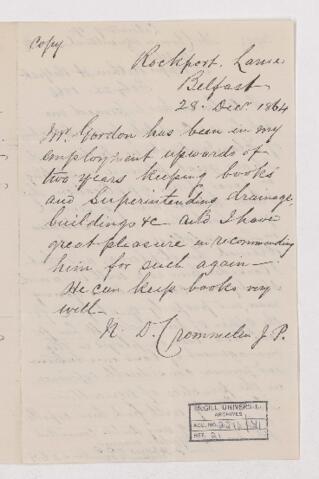 Copy
Rockport, Larne
Belfast
28. Decr. 1864
Mr. Gordon has been in my
employment upwards of
two years keeping books
and Superintending drainage,
buildings &c and I have
great pleasure in recommending
him for such again—
He can keep books very
well—
N. D. Crommelin J.P.
McGILL UNIVERSITY
ARCHIVES
ACC. NO.
REF. 21